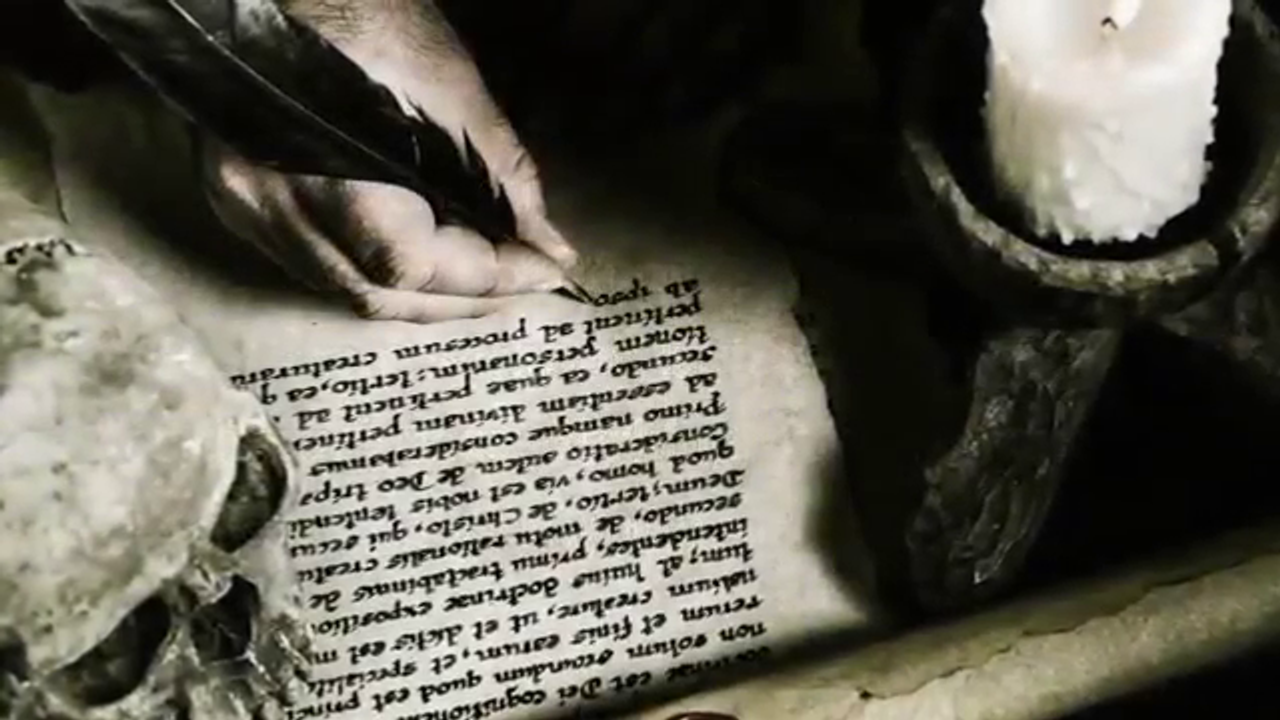 est Dei cognitionem
non solum secundum quod est princi
rerum et finis earum, et specialite
nalium creature, ut et dictis est m
tum; al huius doctrinae expositio
intendentes, primu tractabimus de
secundo, de motu rationalis creatu
Deum; tertio, de Christo, qui secu
quod homo, via est nobis tentendi
Consideratio autem de Deo tripa
Primo namque considerabamus
ad essentiam divinam pertine
secundo, ea quae pertinent ad
tionem personanim: tertio, ea q
pertinent ad processum creaturaru
ab ipso